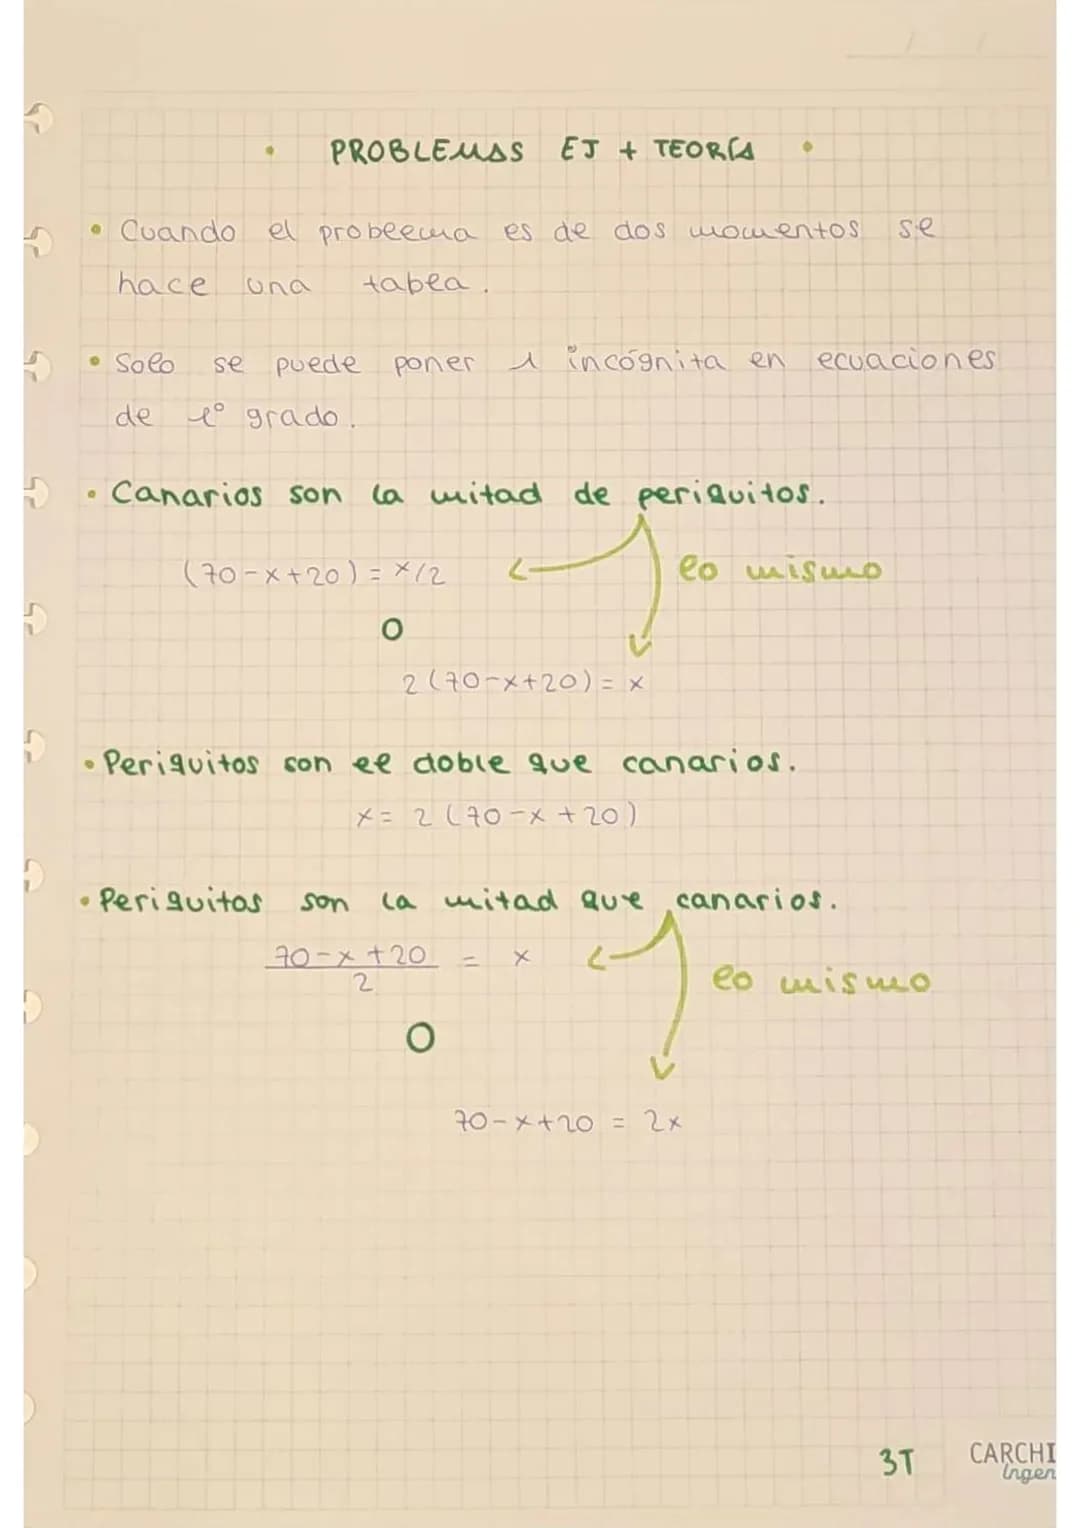 PROBLEMAS EJ + TEORÍA
• Cuando el problema es de dos momentos se
hace una tabla.
• Solo se puede poner 1 incógnita en ecuaciones
de 1º grado.
• Canarios son la mitad de periquitos.
(70-x+20) = x/2
lo mismo
O
2(70-x+20) = x
• Periquitos son el doble que canarios.
x = 2(70-x+20)
• Periquitos son la mitad que canarios.
70-x+20 = x
2
lo mismo
O
70-x+20 = 2x
3T
CARCHI
Ingen